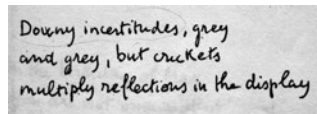 Downy incertitudes, grey
and grey, but crickets
multiply reflections in the display